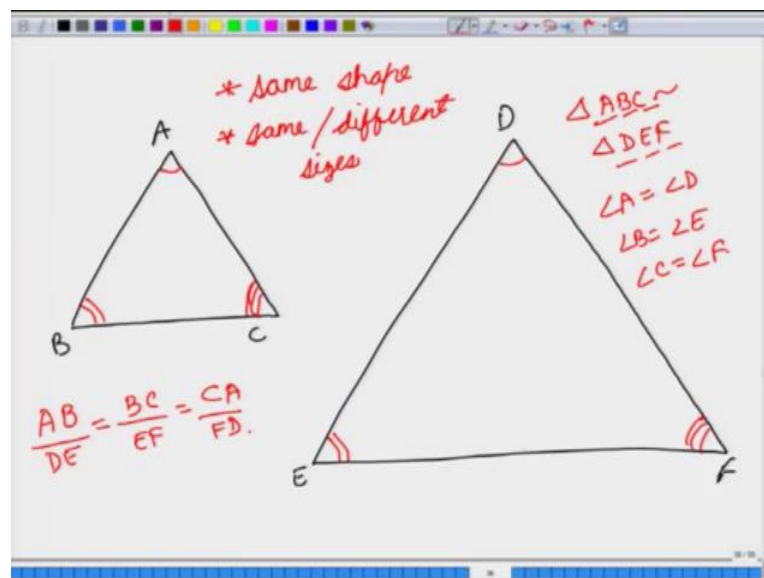 * same shape
* same / different
sizes
A
B
C
D
E
F
△ ABC ~
△ DEF
∠A = ∠D
∠B = ∠E
∠C = ∠F
AB/DE = BC/EF = CA/FD.